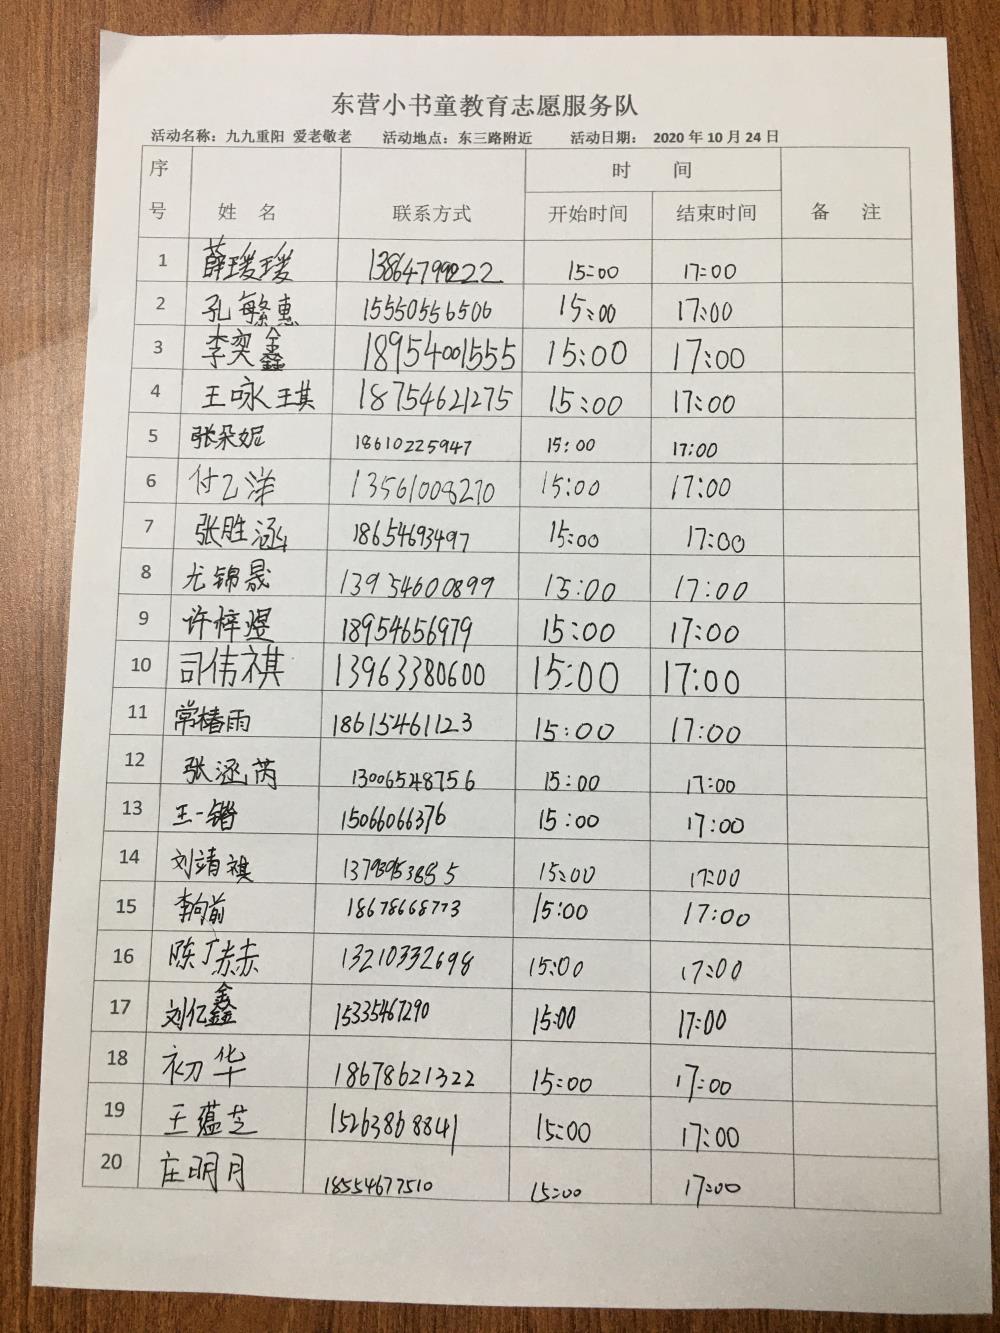 东营小书童教育志愿服务队
活动名称：九九重阳 爱老敬老 活动地点：东三路附近 活动日期： 2020 年 10 月 24 日
序号 姓 名 联系方式 时 间 备 注
开始时间 结束时间
1 薛瑗瑗 13864799222 15:00 17:00
2 孔繁惠 15550556506 15:00 17:00
3 李奕鑫 18954001555 15:00 17:00
4 王咏琪 18754621275 15:00 17:00
5 张朵妮 18610225947 15:00 17:00
6 付乙洋 13561008270 15:00 17:00
7 张胜涵 18654693497 15:00 17:00
8 尤锦晟 13954600899 15:00 17:00
9 许梓煜 18954656979 15:00 17:00
10 司伟祺 13963380600 15:00 17:00
11 常椿雨 18615461123 15:00 17:00
12 张涵芮 13006548756 15:00 17:00
13 王一锴 15066066376 15:00 17:00
14 刘靖祺 15:00 17:00
15 李向前 18678668773 15:00 17:00
16 陈丁赫 13210332698 15:00 17:00
17 刘亿鑫 15335467290 15:00 17:00
18 初华 18678621322 15:00 17:00
19 王蕴芝 15263868841 15:00 17:00
20 庄明月 18554677510 15:00 17:00